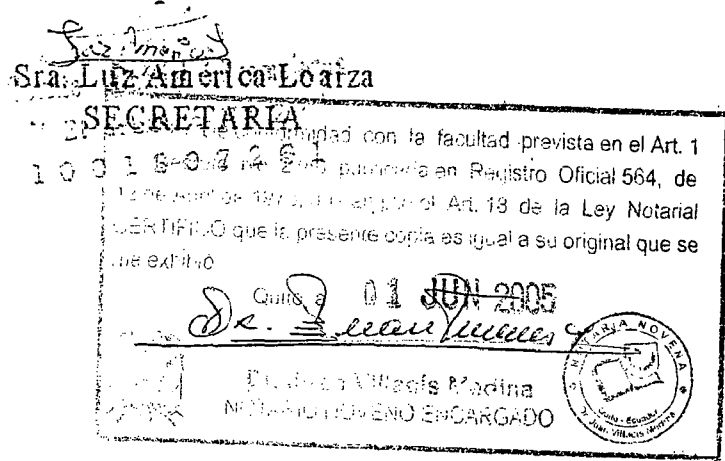 Luz América
Sra. Luz América Loaiza
SECRETARIA
conformidad con la facultad prevista en el Art. 1
publicada en Registro Oficial 564, de
12 de Abril de Art. 18 de la Ley Notarial
CERTIFICO que la presente copia es igual a su original que se
me exhibió
Quito, a 01 JUN 2005
Dr. Juan Villacís Medina
NOTARIO NOVENO ENCARGADO
NOTARIA NOVENA
Quito - Ecuador
Dr. Juan Villacis Medina